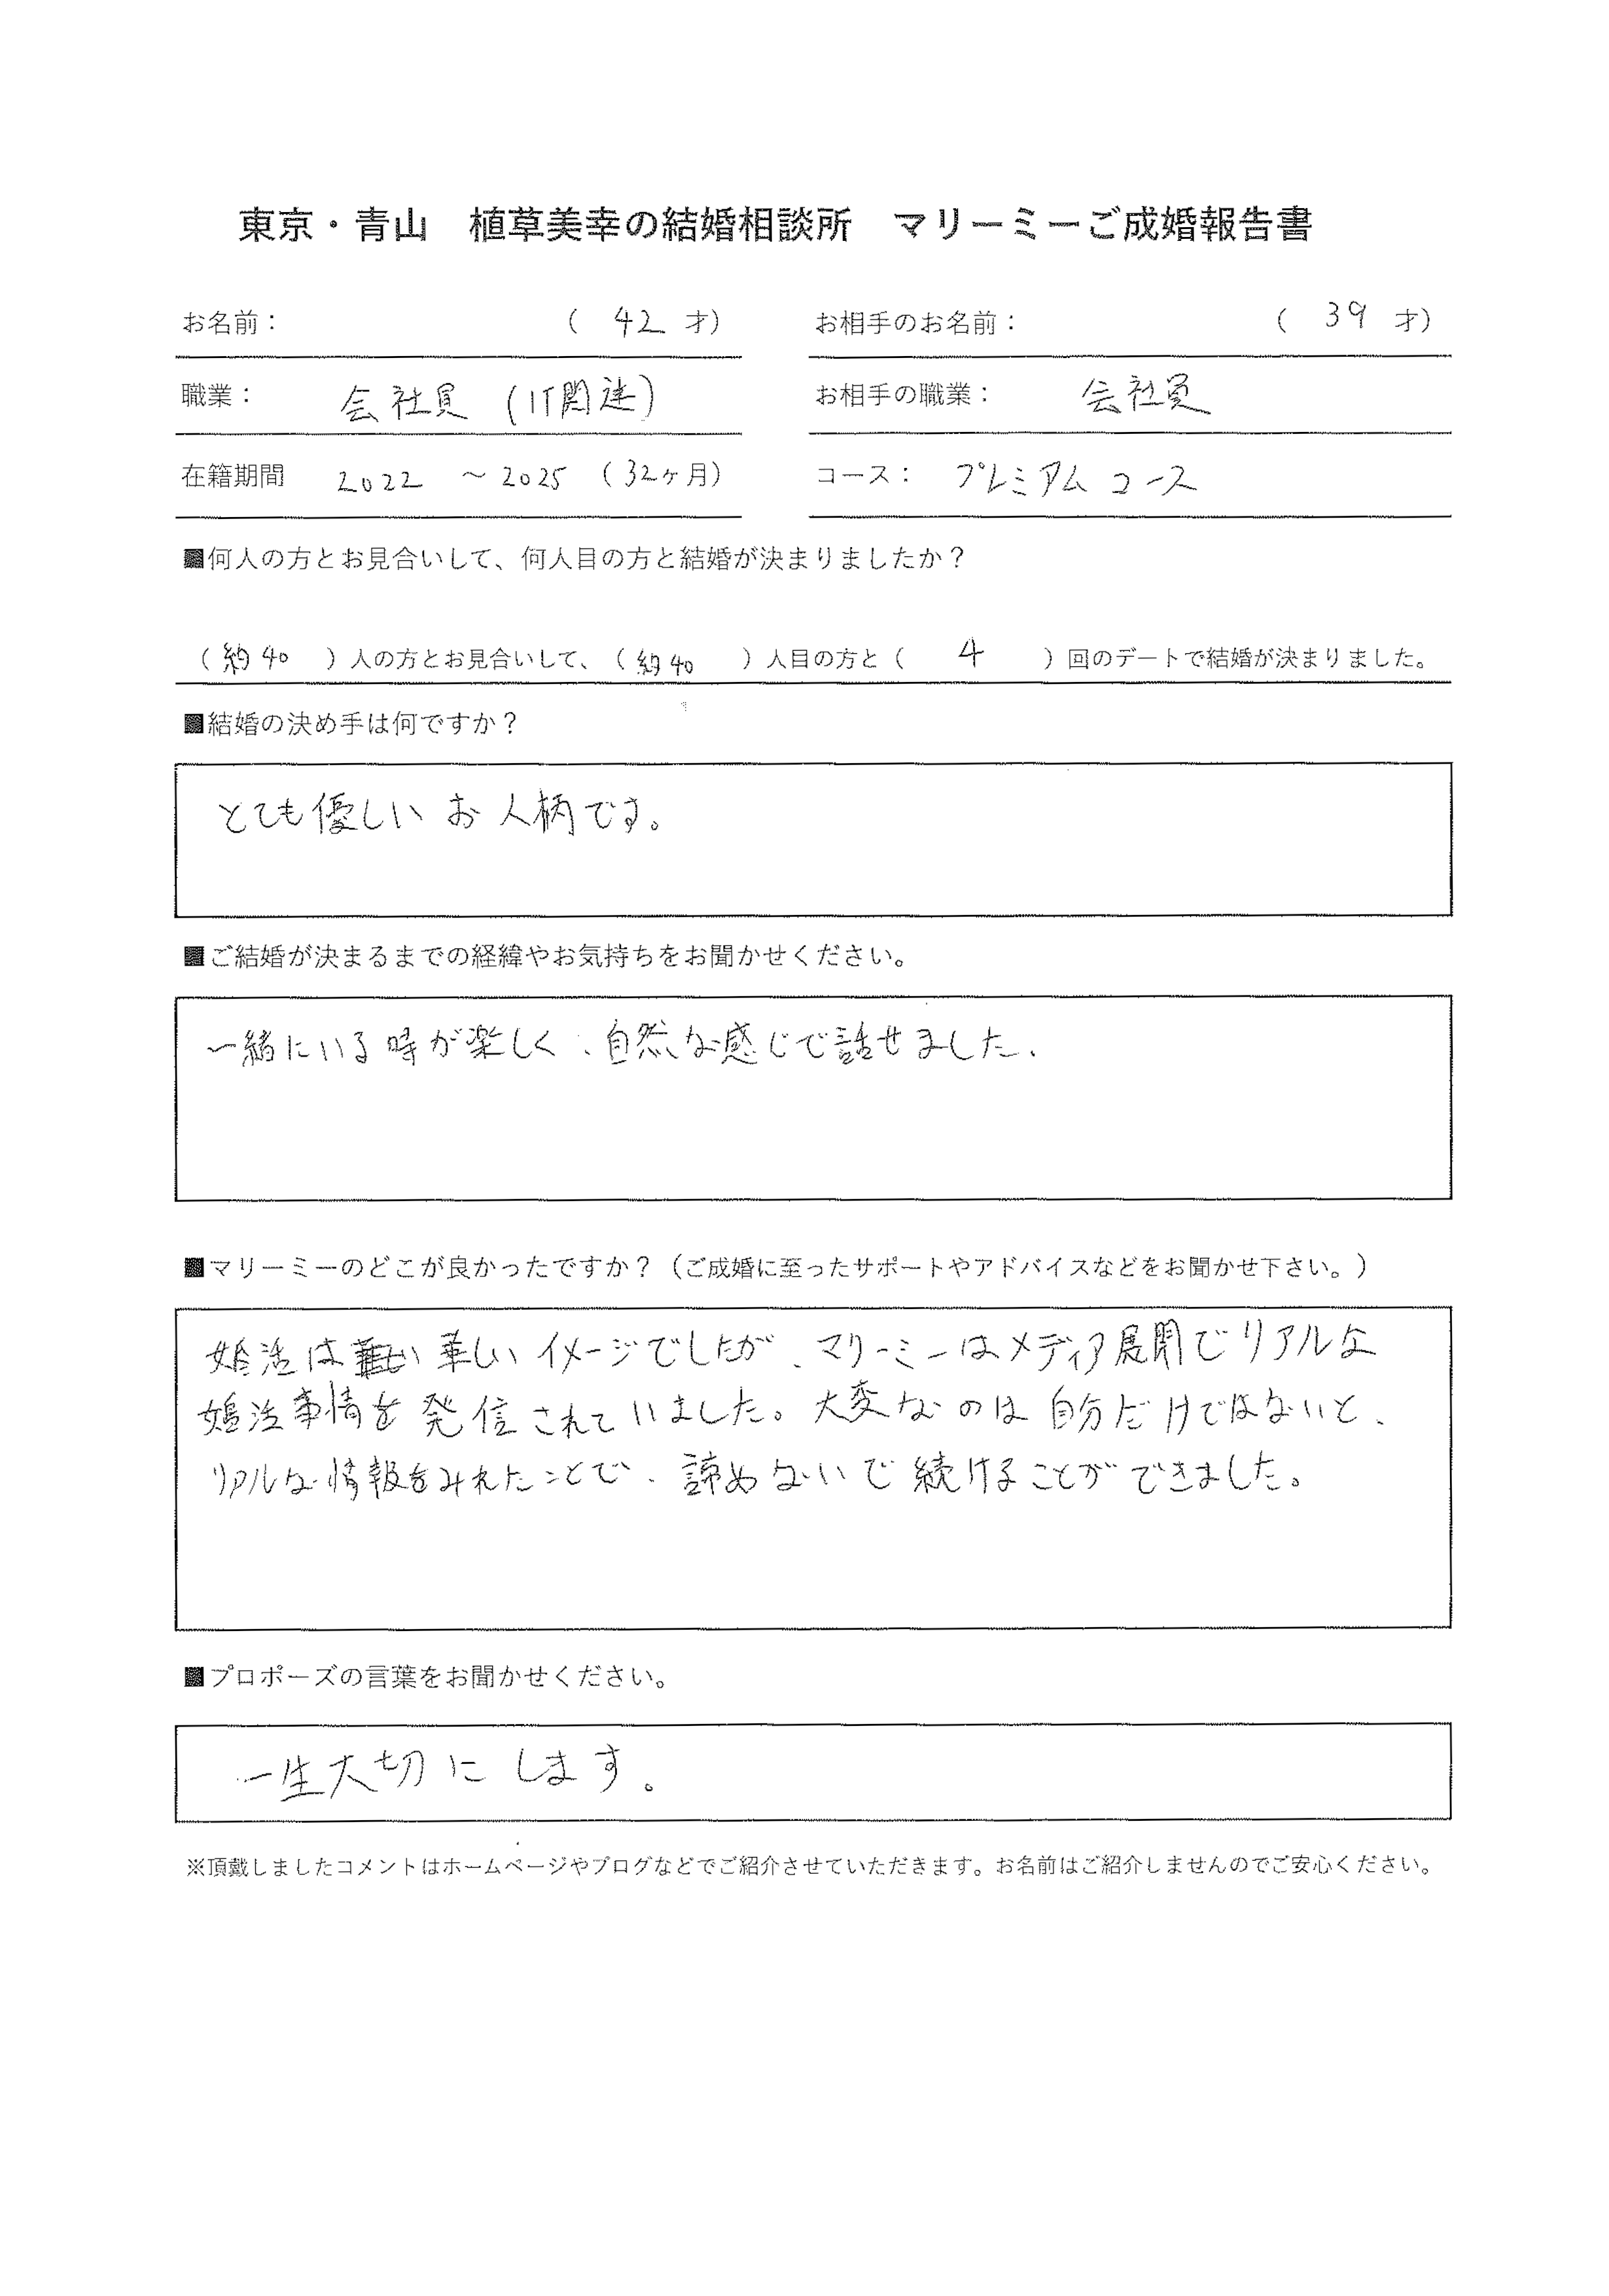 東京・青山　植草美幸の結婚相談所　マリーミーご成婚報告書
お名前：　（ 42 才）　お相手のお名前：　（ 39 才）
職業：　会社員（IT関連）　お相手の職業：　会社員
在籍期間　2022 ～ 2025 （32ヶ月）　コース：　プレミアムコース
■何人の方とお見合いして、何人目の方と結婚が決まりましたか？
（約40　）人の方とお見合いして、（約40　）人目の方と（　4　）回のデートで結婚が決まりました。
■結婚の決め手は何ですか？
とても優しいお人柄です。
■ご結婚が決まるまでの経緯やお気持ちをお聞かせください。
一緒にいる時が楽しく、自然な感じで話せました、
■マリーミーのどこが良かったですか？（ご成婚に至ったサポートやアドバイスなどをお聞かせ下さい。）
婚活は華しいイメージでしたが、マリーミーはメディア展開でリアルな
婚活事情を発信されていました。大変なのは自分だけではないと、
リアルな情報をみれたことで、諦めないで続けることができました。
■プロポーズの言葉をお聞かせください。
一生大切にします。
※頂戴しましたコメントはホームページやブログなどでご紹介させていただきます。お名前はご紹介しませんのでご安心ください。